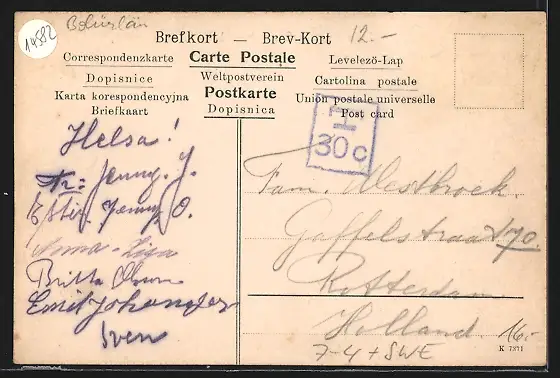 14582
Bohuslän
12.-
Brefkort — Brev-Kort
Correspondenzkarte Carte Postale Levelező-Lap
Dopisnice Weltpostverein Cartolina postale
Karta korespondencyjna Postkarte Union postale universelle
Briefkaart Dopisnica Post card
T
30 c
Helsa!
Fr: Jenny. J.
Jenny O.
Anna-Lisa
Britta Olsson
Emil Johansson
Sven
Fam. Westbroek.
Gaffelstraat 70.
Rotterdam
Holland
7-4 + SWE
16.-
K 7371